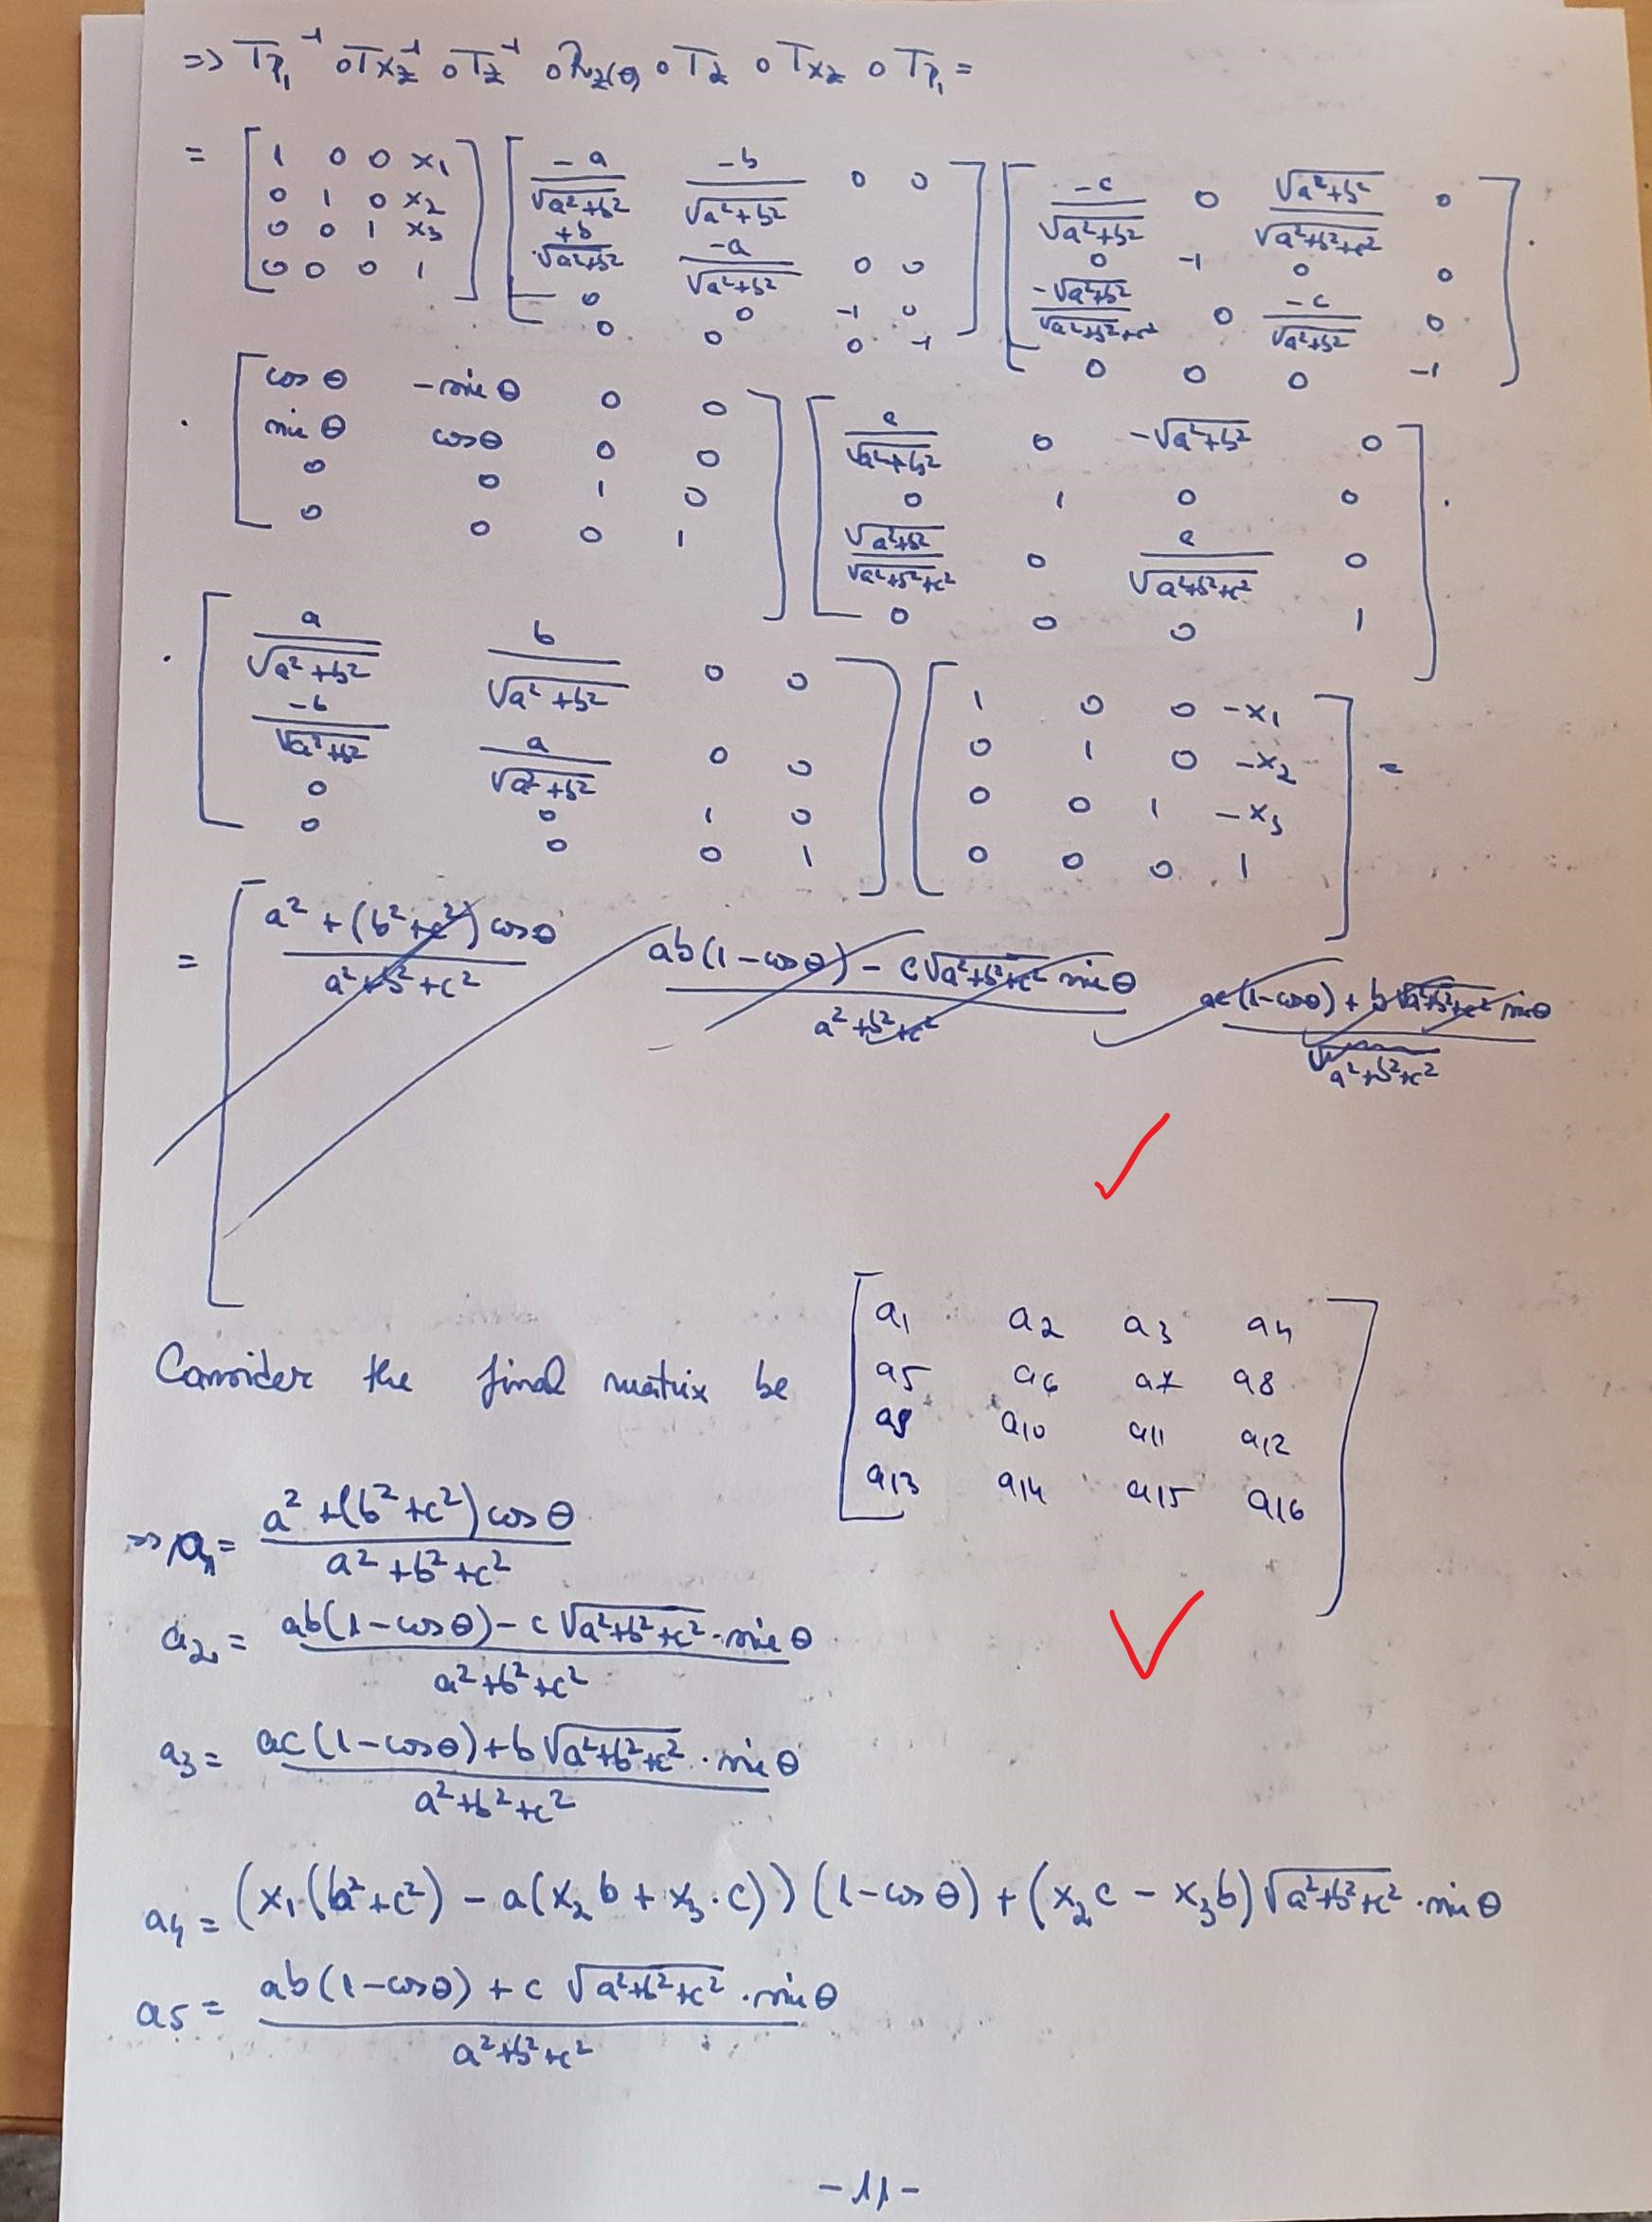 => Tp₁⁻¹ ∘ Txz⁻¹ ∘ Tz⁻¹ ∘ Rz(θ) ∘ Tz ∘ Txz ∘ Tp₁ =
= [1 0 0 x₁; 0 1 0 x₂; 0 0 1 x₃; 0 0 0 1] [-a/√(a²+b²) -b/√(a²+b²) 0 0; +b/√(a²+b²) -a/√(a²+b²) 0 0; 0 0 -1 0; 0 0 0 -1] [-c/√(a²+b²) 0 √(a²+b²)/√(a²+b²+c²) 0; 0 -1 0 0; -√(a²+b²)/√(a²+b²+c²) 0 -c/√(a²+b²) 0; 0 0 0 -1] ·
· [cos θ -sin θ 0 0; sin θ cos θ 0 0; 0 0 1 0; 0 0 0 1] [c/√(a²+b²) 0 -√(a²+b²) 0; 0 1 0 0; √(a²+b²)/√(a²+b²+c²) 0 c/√(a²+b²+c²) 0; 0 0 0 1] ·
· [a/√(a²+b²) b/√(a²+b²) 0 0; -b/√(a²+b²) a/√(a²+b²) 0 0; 0 0 1 0; 0 0 0 1] [1 0 0 -x₁; 0 1 0 -x₂; 0 0 1 -x₃; 0 0 0 1] =
= [ (a²+(b²+c²)cosθ)/(a²+b²+c²) (ab(1-cosθ) - c√(a²+b²+c²) sinθ)/(a²+b²+c²) (ac(1-cosθ) + b√(a²+b²+c²) sinθ)/(a²+b²+c²)
Consider the final matrix be [a₁ a₂ a₃ a₄; a₅ a₆ a₇ a₈; a₉ a₁₀ a₁₁ a₁₂; a₁₃ a₁₄ a₁₅ a₁₆]
=> a₁ = (a²+(b²+c²)cos θ)/(a²+b²+c²)
a₂ = (ab(1-cos θ) - c√(a²+b²+c²) · sin θ)/(a²+b²+c²)
a₃ = (ac(1-cosθ) + b√(a²+b²+c²) · sin θ)/(a²+b²+c²)
a₄ = (x₁(b²+c²) - a(x₂b + x₃·c))(1-cos θ) + (x₂c - x₃b)√(a²+b²+c²) · sin θ
a₅ = (ab(1-cosθ) + c √(a²+b²+c²) · sin θ)/(a²+b²+c²)
-11-